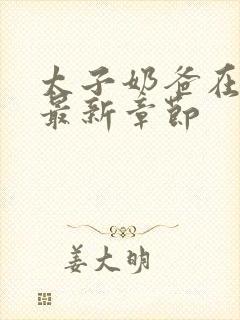 太子奶爸在
最新章节
姜大明